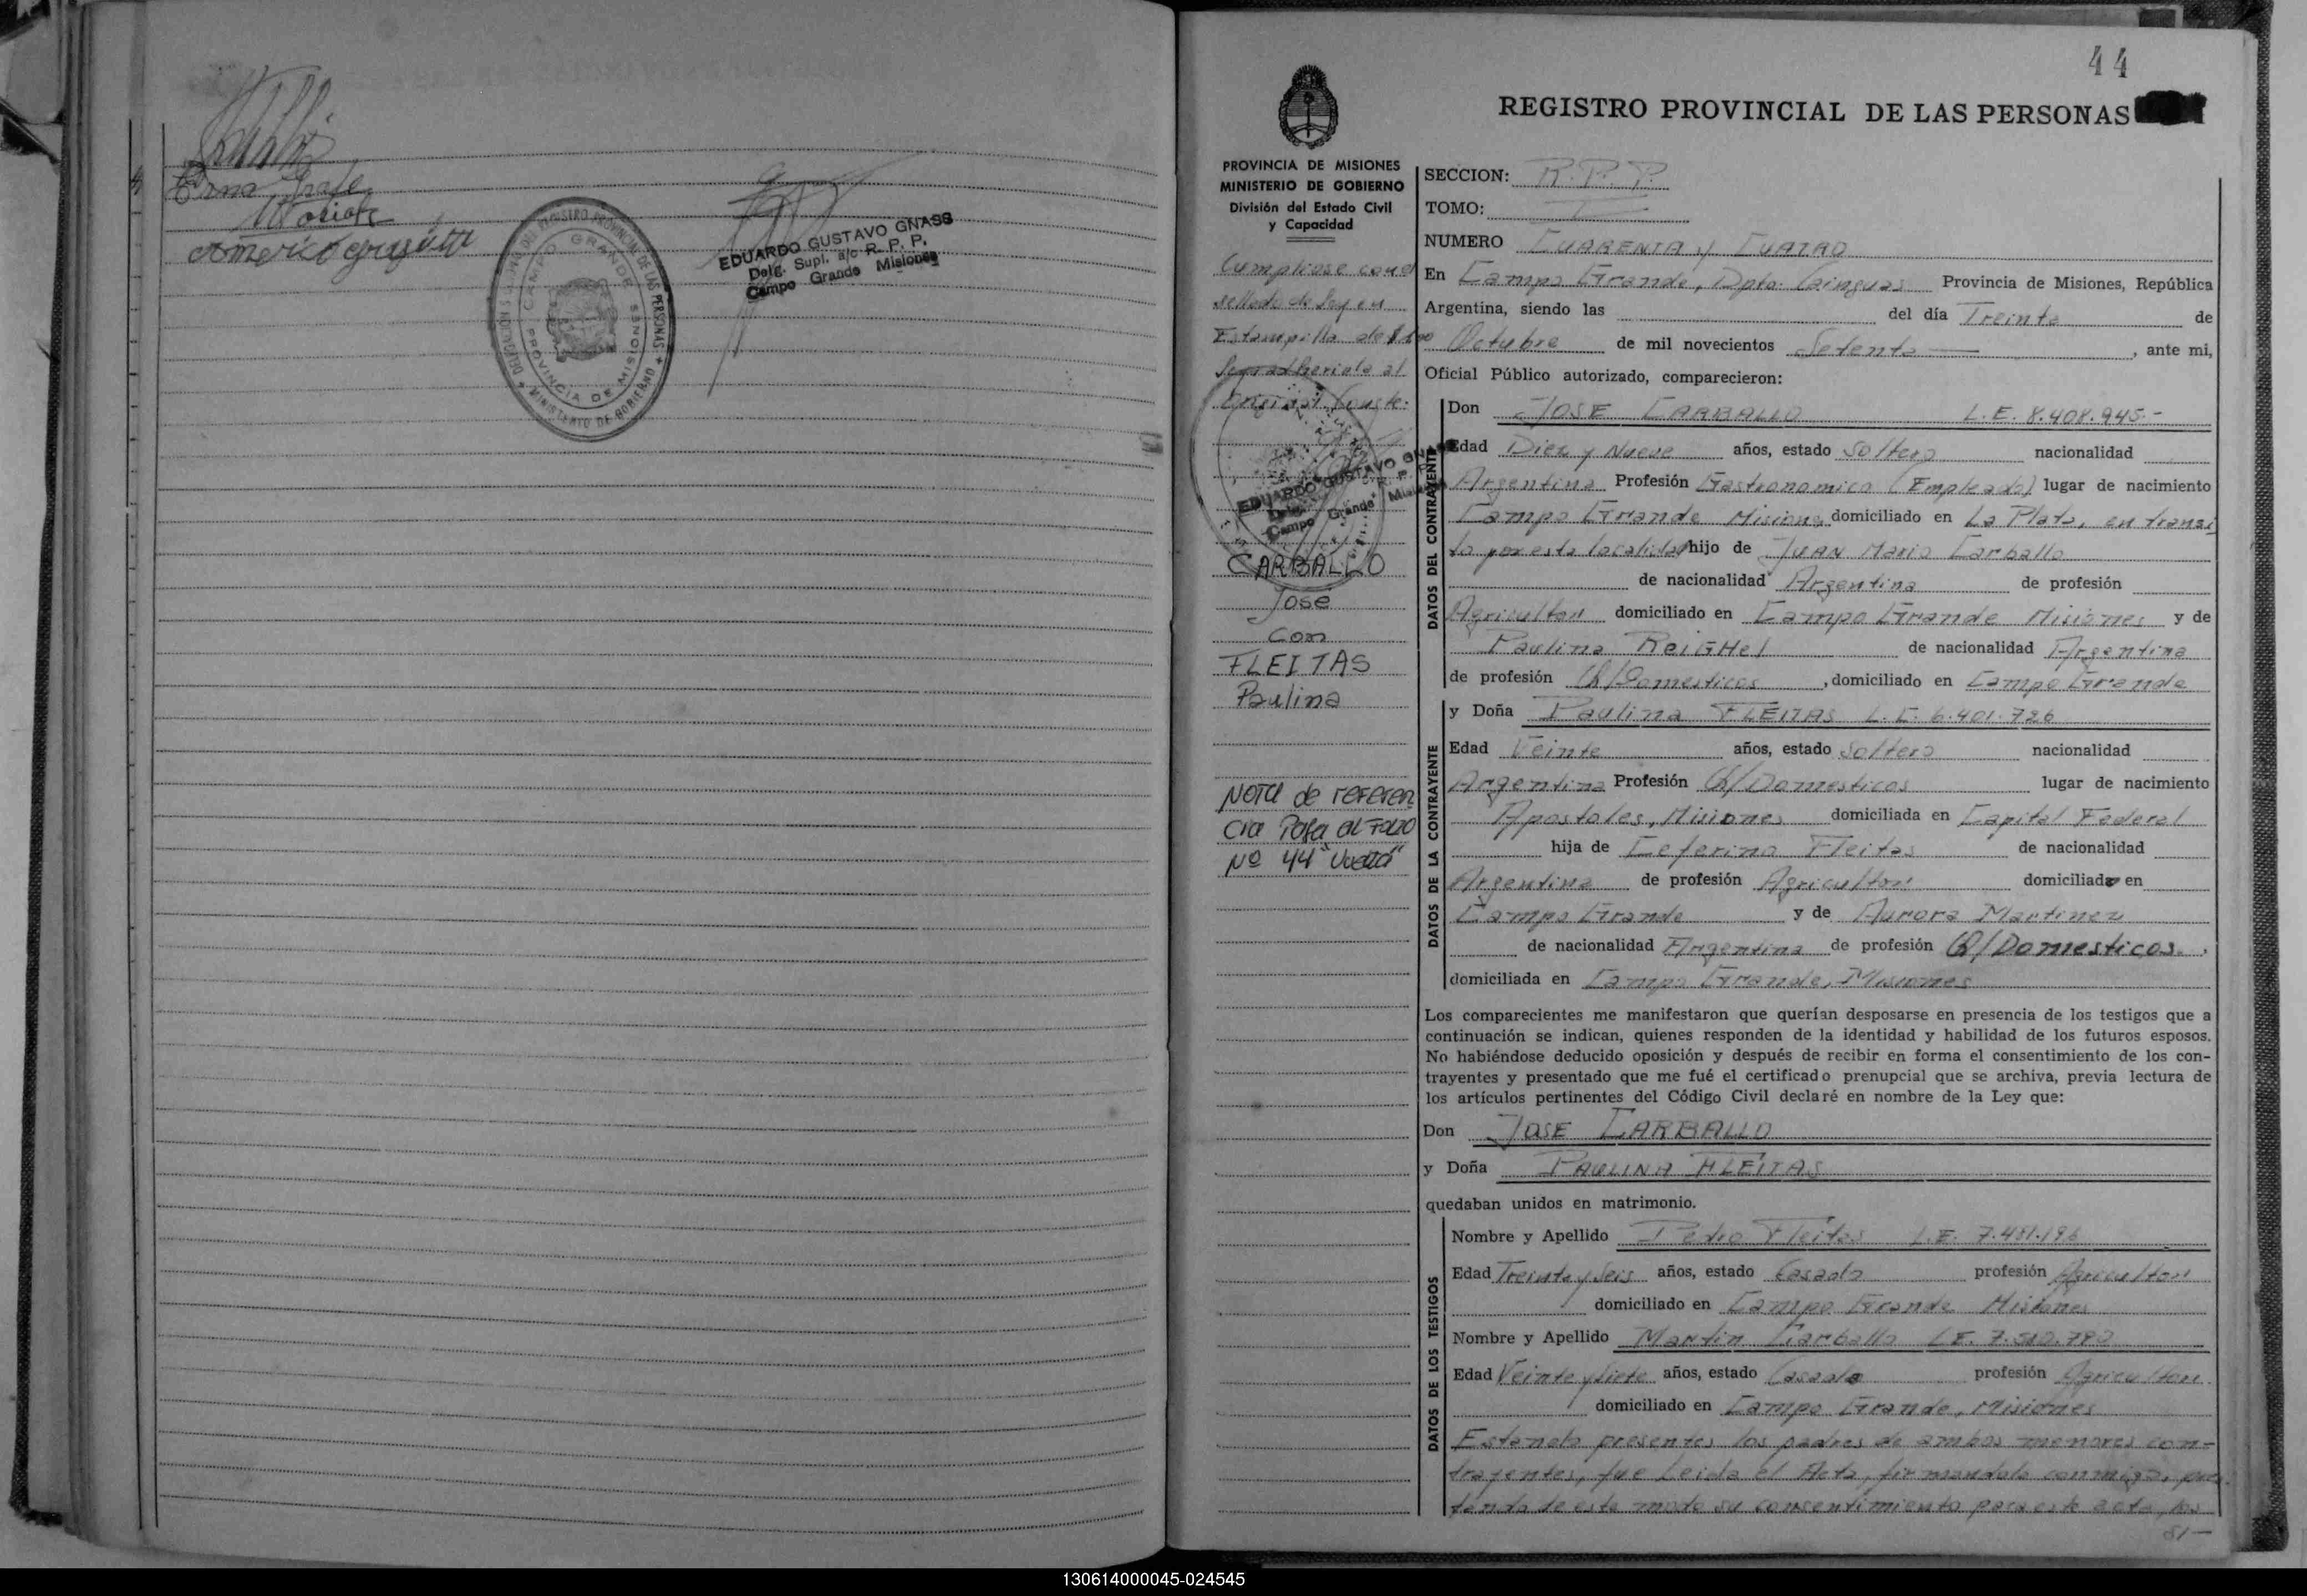 Erna Grafe
EDUARDO GUSTAVO GNASS
Delg. Supl. a/c R. P. P.
Campo Grande Misiones
CAMPO GRANDE
PROVINCIA DE MISIONES
MINISTERIO DE GOBIERNO
44
REGISTRO PROVINCIAL DE LAS PERSONAS
PROVINCIA DE MISIONES
MINISTERIO DE GOBIERNO
División del Estado Civil
y Capacidad
Cumpliose con el
sellado de Ley en
Estampilla de
original Conste.
EDUARDO GUSTAVO
Campo Grande
CARBALLO
José
Con
FLEITAS
Paulina
Nota de referen
cia Pasa al Folio
Nº 44 "vuelta"
SECCION: R.P.P.
TOMO: I
NUMERO CUARENTA y CUATRO
En Campo Grande, Dpto. Cainguas Provincia de Misiones, República
Argentina, siendo las del día Treinta de
Octubre de mil novecientos Setenta — , ante mi,
Oficial Público autorizado, comparecieron:
DATOS DEL CONTRAYENTE
Don JOSE CARBALLO L.E. 8.408.945.-
Edad Diez y Nueve años, estado Soltero nacionalidad
Argentina Profesión Gastronomico (Empleado) lugar de nacimiento
Campo Grande Misiones domiciliado en La Plata, en transi
to por esta localidad hijo de JUAN Mario Carballo
de nacionalidad Argentina de profesión
Agricultor domiciliado en Campo Grande Misiones y de
Paulina ReiGHel de nacionalidad Argentina
de profesión Q/Domesticos , domiciliado en Campo Grande
DATOS DE LA CONTRAYENTE
y Doña Paulina FLEITAS L.C. 6.401.726
Edad Veinte años, estado Soltero nacionalidad
Argentina Profesión Q/Domesticos lugar de nacimiento
Apostoles, Misiones domiciliada en Capital Federal
hija de Ceferino Fleitas de nacionalidad
Argentina de profesión Agricultor domiciliado en
Campo Grande y de Aurora Martinez
de nacionalidad Argentina de profesión Q/Domesticos. ,
domiciliada en Campo Grande, Misiones
Los comparecientes me manifestaron que querían desposarse en presencia de los testigos que a
continuación se indican, quienes responden de la identidad y habilidad de los futuros esposos.
No habiéndose deducido oposición y después de recibir en forma el consentimiento de los con-
trayentes y presentado que me fué el certificado prenupcial que se archiva, previa lectura de
los artículos pertinentes del Código Civil declaré en nombre de la Ley que:
Don JOSE CARBALLO
y Doña PAULINA FLEITAS
quedaban unidos en matrimonio.
DATOS DE LOS TESTIGOS
Nombre y Apellido Pedro Fleitas L.E. 7.481.196
Edad Treinta y Seis años, estado Casado profesión Agricultor
domiciliado en Campo Grande Misiones
Nombre y Apellido Martin Carballo L.E.
Edad Veinte y Siete años, estado Casado profesión Agricultor
domiciliado en Campo Grande, Misiones
Estando presentes los padres de ambos menores con-
trayentes, fue Leida el Acta, firmandola conmigo, pres
tando de este modo su consentimiento para este acto, los
130614000045-024545